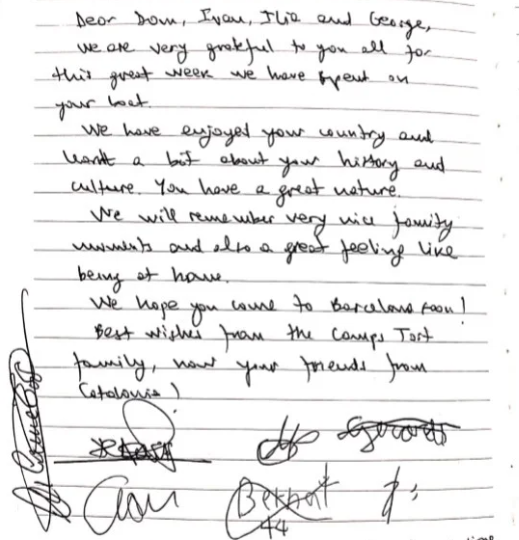 Dear Dom, Ivan, Ilia and George,
we are very grateful to you all for
this great week we have spent on
your boat.
We have enjoyed your country and
learnt a bit about your history and
culture. You have a great nature.
We will remember very nice family
moments and also a great feeling like
being at home.
We hope you come to Barcelona soon!
Best wishes from the Camps Tort
family, now your friends from
Catalonia!
Gerard
Bernat
44